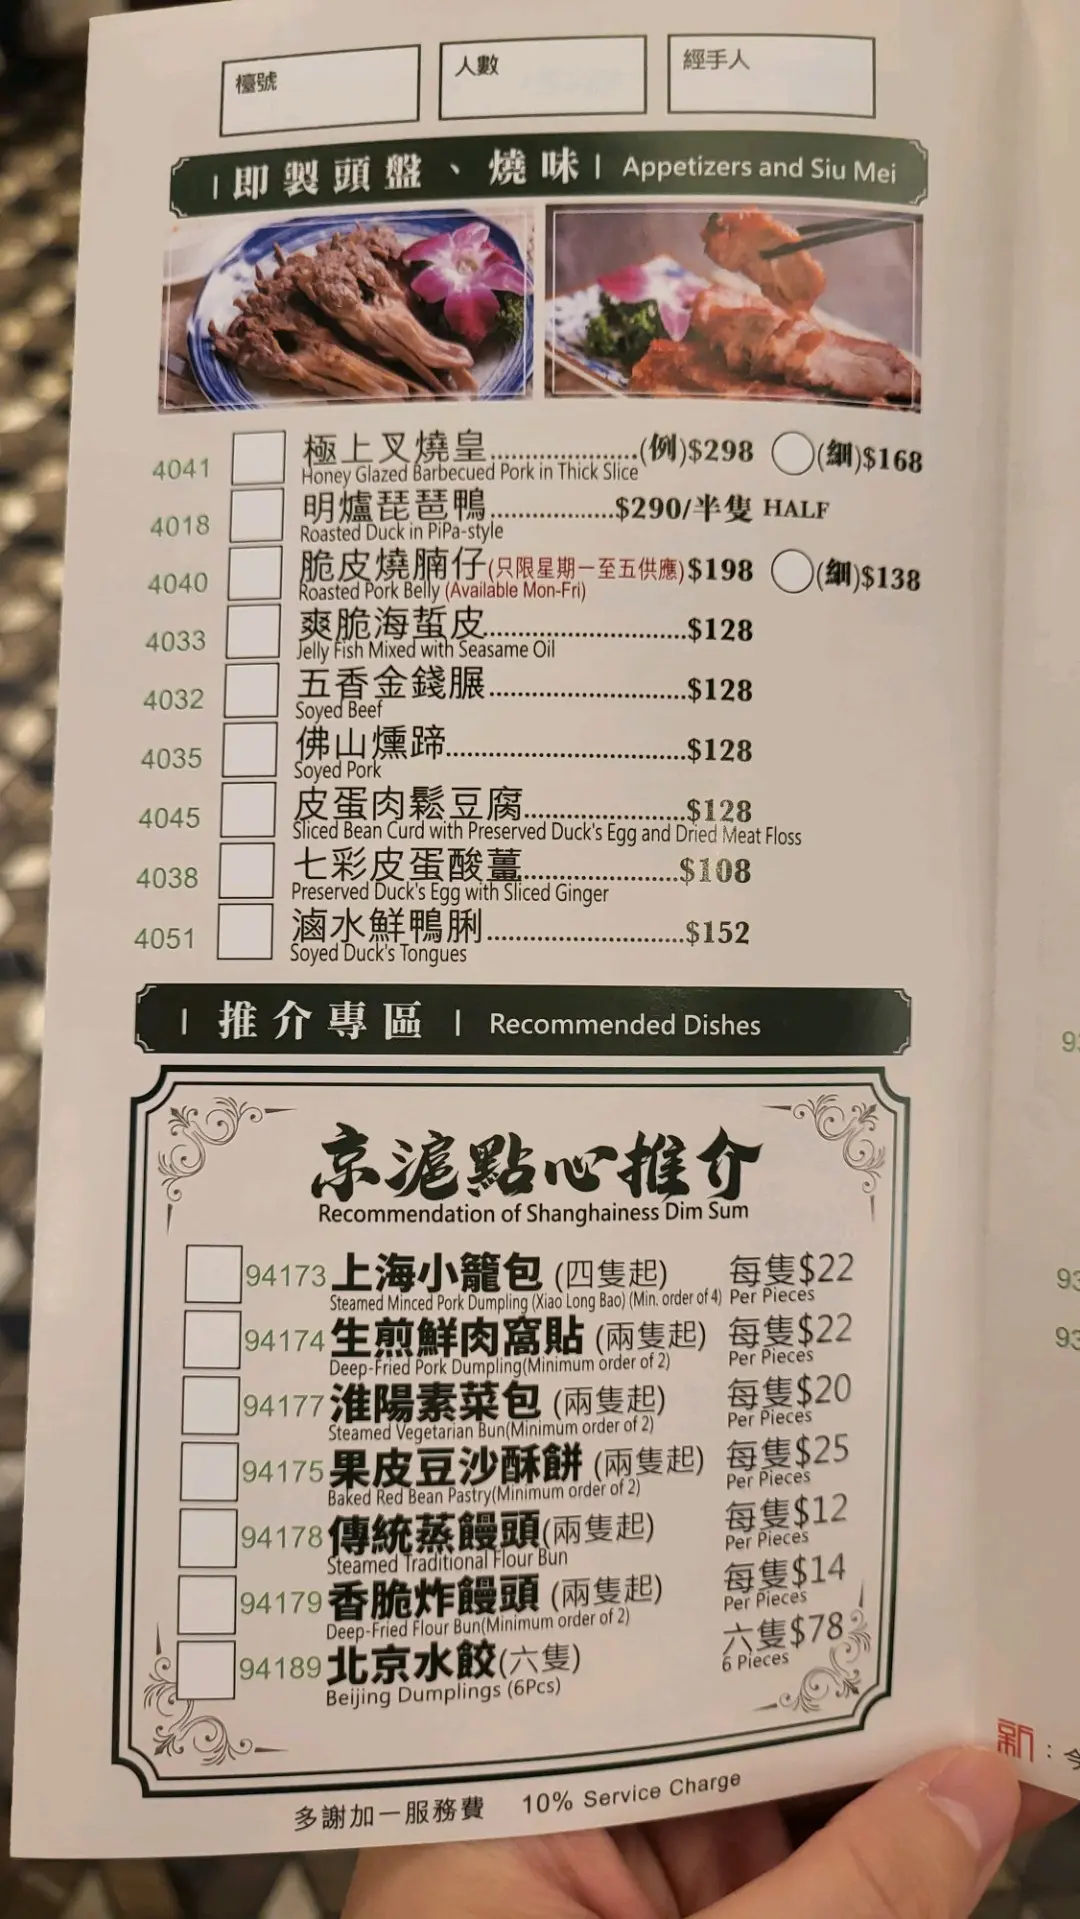 檯號
人數
經手人
即製頭盤、燒味 | Appetizers and Siu Mei
4041 極上叉燒皇....................(例)$298 (細)$168
Honey Glazed Barbecued Pork in Thick Slice
4018 明爐琵琶鴨..............$290/半隻 HALF
Roasted Duck in PiPa-style
4040 脆皮燒腩仔(只限星期一至五供應)$198 (細)$138
Roasted Pork Belly (Available Mon-Fri)
4033 爽脆海蜇皮.......................$128
Jelly Fish Mixed with Seasame Oil
4032 五香金錢𦟌.......................$128
Soyed Beef
4035 佛山燻蹄...........................$128
Soyed Pork
4045 皮蛋肉鬆豆腐..................$128
Sliced Bean Curd with Preserved Duck's Egg and Dried Meat Floss
4038 七彩皮蛋酸薑..................$108
Preserved Duck's Egg with Sliced Ginger
4051 滷水鮮鴨脷.......................$152
Soyed Duck's Tongues
推介專區 | Recommended Dishes
京滬點心推介
Recommendation of Shanghainess Dim Sum
94173 上海小籠包 (四隻起) 每隻$22
Steamed Minced Pork Dumpling (Xiao Long Bao) (Min. order of 4) Per Pieces
94174 生煎鮮肉窩貼 (兩隻起) 每隻$22
Deep-Fried Pork Dumpling(Minimum order of 2) Per Pieces
94177 淮陽素菜包 (兩隻起) 每隻$20
Steamed Vegetarian Bun(Minimum order of 2) Per Pieces
94175 果皮豆沙酥餅 (兩隻起) 每隻$25
Baked Red Bean Pastry(Minimum order of 2) Per Pieces
94178 傳統蒸饅頭(兩隻起) 每隻$12
Steamed Traditional Flour Bun Per Pieces
94179 香脆炸饅頭 (兩隻起) 每隻$14
Deep-Fried Flour Bun(Minimum order of 2) Per Pieces
94189 北京水餃(六隻) 六隻$78
Beijing Dumplings (6Pcs) 6 Pieces
多謝加一服務費 10% Service Charge
新 :